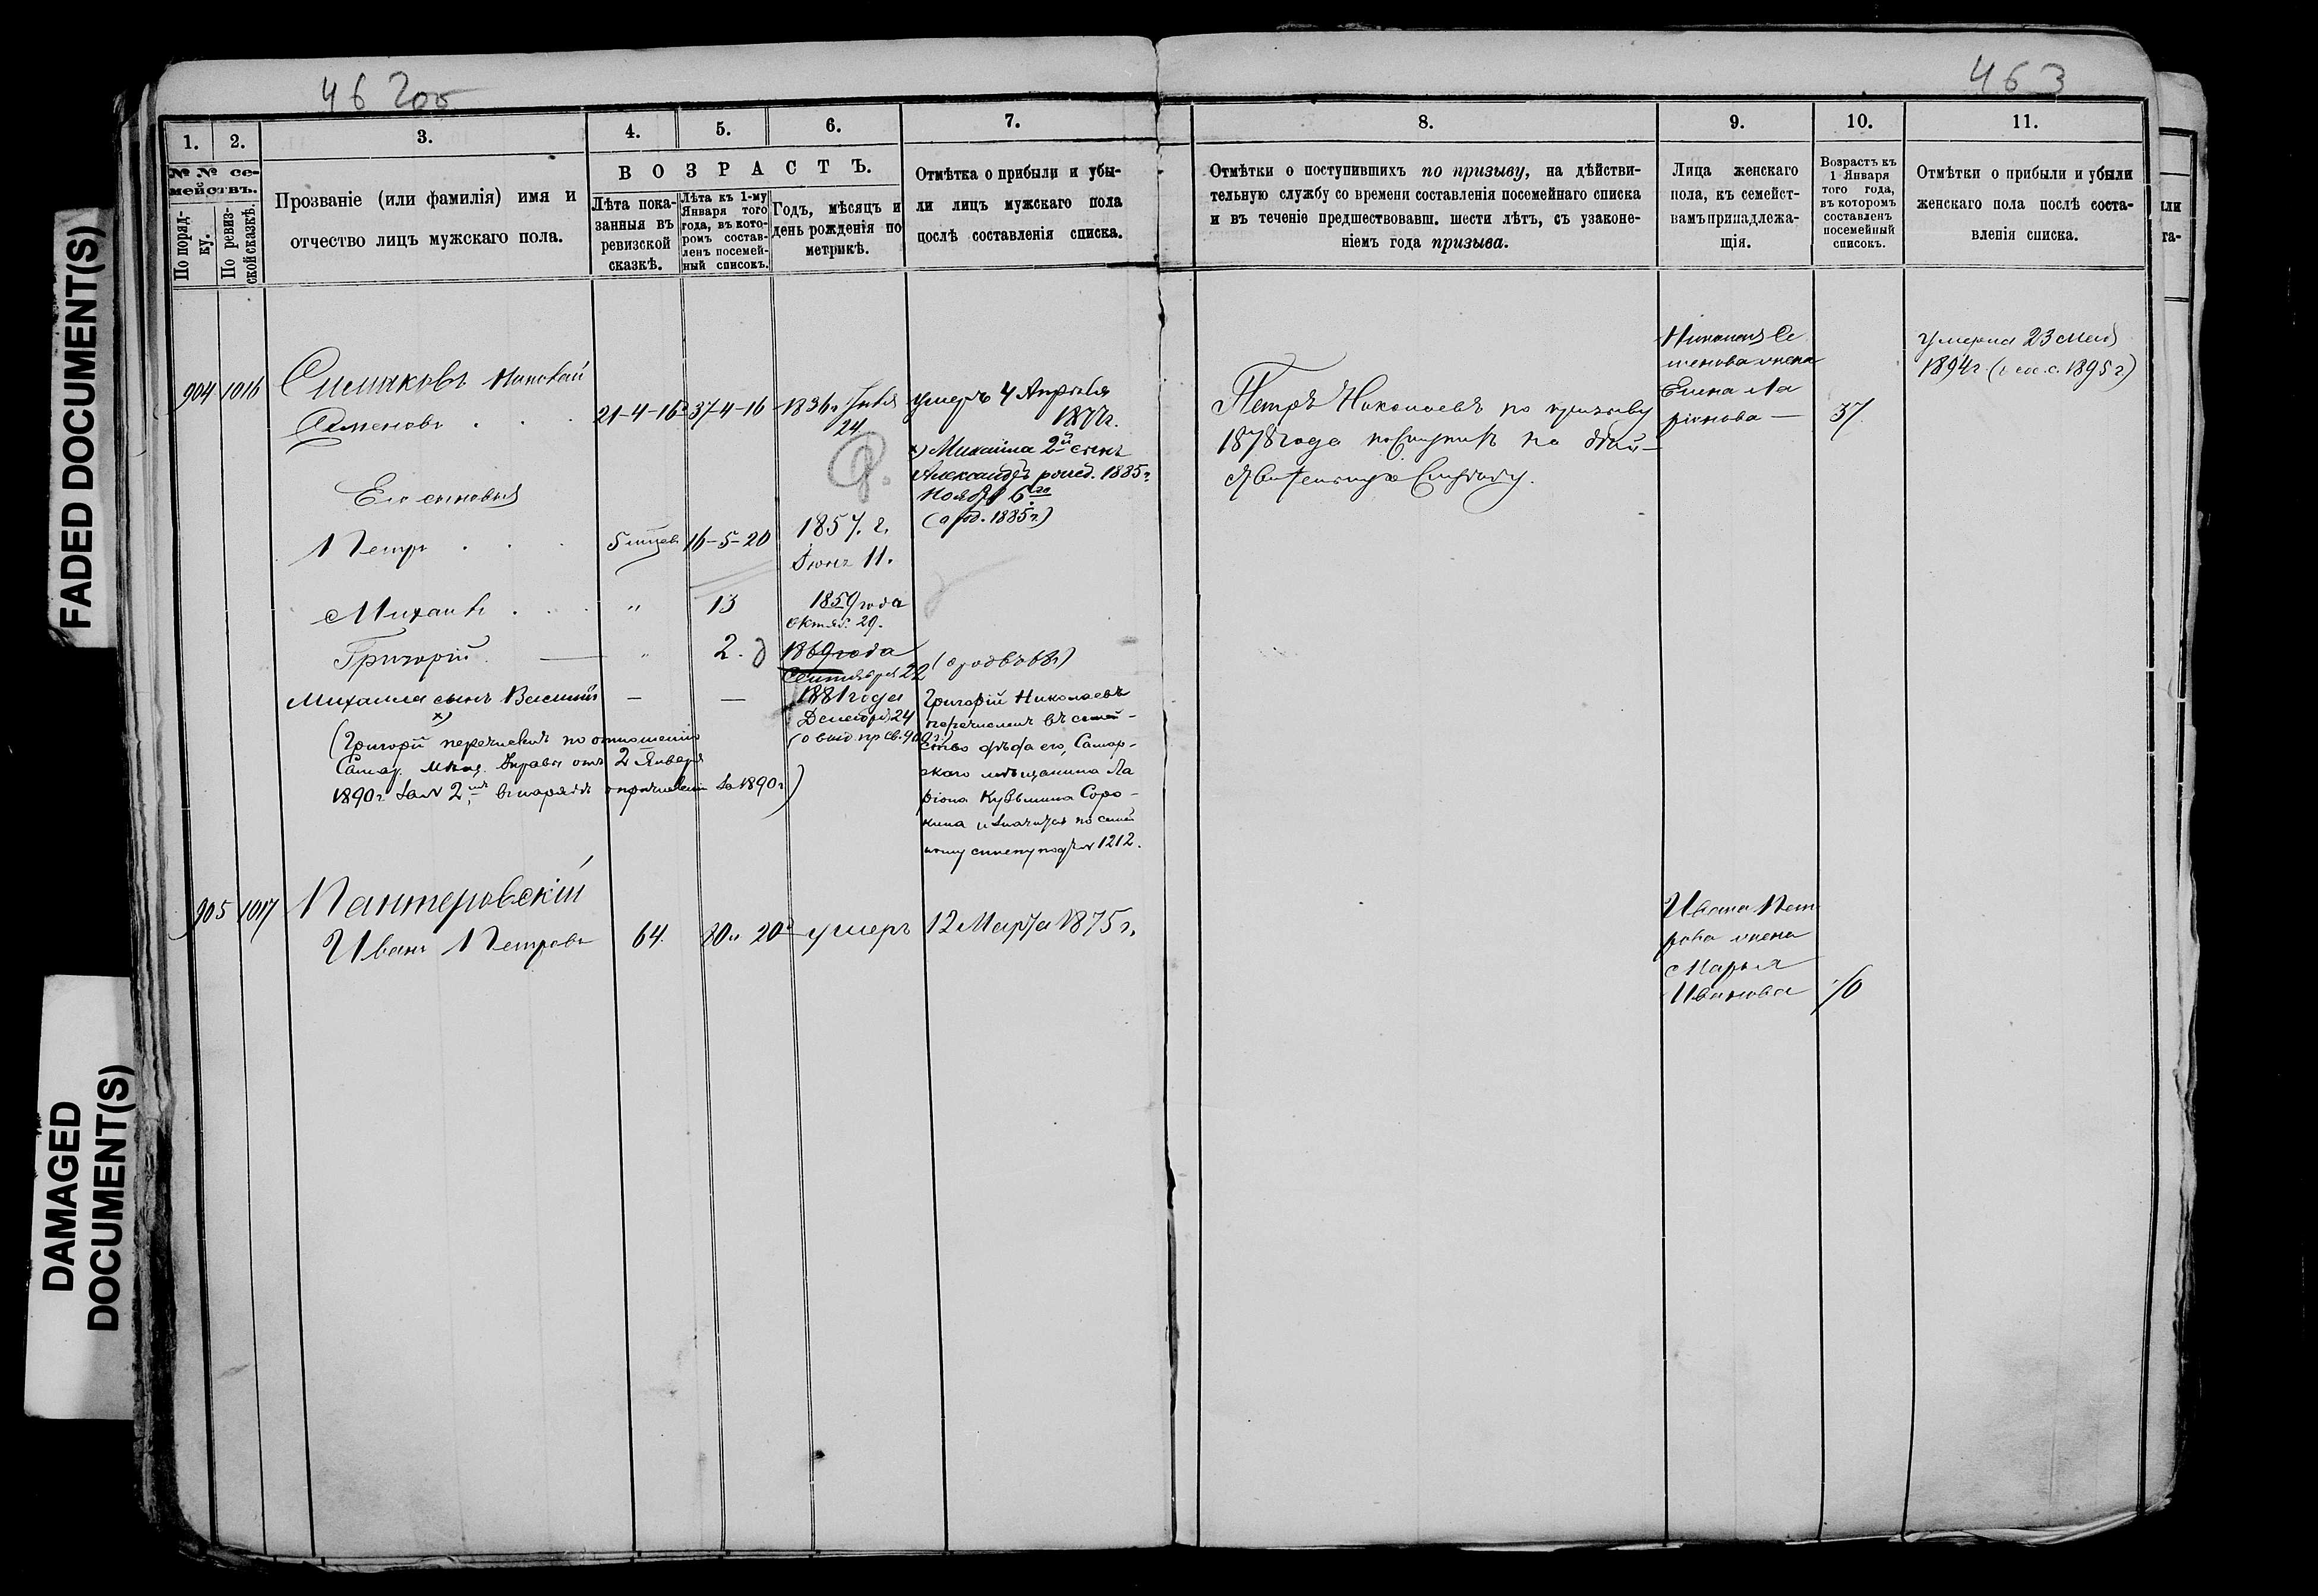 462об
463
FADED DOCUMENT(S)
DAMAGED
DOCUMENT(S)
1.
2.
3.
4.
5.
6.
7.
№ № се-
мействъ.
По поряд-
ку.
По ревиз-
ской сказкѣ.
Прозваніе (или фамилія) имя и
отчество лицъ мужскаго пола.
ВОЗРАСТЪ.
Лѣта пока-
занныя въ
ревизской
сказкѣ.
Лѣта къ 1-му
Января того
года, въ кото-
ромъ состав-
ленъ посемей-
ный списокъ.
Годъ, мѣсяцъ и
день рожденія по
метрикѣ.
Отмѣтка о прибыли и убы-
ли лицъ мужскаго пола
послѣ составленія списка.
904 1016
Николай
Семеновъ . . .
21-4-16 37-4-16 1836г
24
умеръ 4 Апрѣля
1877г.
х) Михаила 2й сынъ
Александръ рожд. 1885г.
Ноября 6го
(о род. 1885г.)
Его сыновья
Петръ . . .
5 мѣсяц. 16-5-20 1857. г.
Іюня 11.
Михаилъ . . . " 13 1859 года
Октяб. 29.
Григорій. — " 2. 1869 года
Сентября 22
Михаила сынъ Василій — — 1881 года
х)
Декабря 24
(Григорій перечисленъ по отношенію
Самар. Мѣщ. Управы отъ 2 Января
1890г за № 2, 1890г)
Григорій Николаевъ
перечисленъ въ семей-
ство дѣда его, Самар-
скаго мѣщанина Ла
ріона Кузьмина Соро-
кина и значится по семей
ному списку подъ № 1212.
905 1017
Пантеровскій
Иванъ Петровъ 64. 80 20 умеръ 12 Марта 1875 г.
8.
9.
10.
11.
Отмѣтки о поступившихъ по призыву, на дѣйстви-
тельную службу со времени составленія посемейнаго списка
и въ теченіе предшествовавш. шести лѣтъ, съ узаконе-
ніемъ года призыва.
Лица женскаго
пола, къ семейст-
вамъ принадлежа-
щія.
Возрастъ къ
1 Января
того года,
въ которомъ
составленъ
посемейный
списокъ.
Отмѣтки о прибыли и убыли
женскаго пола послѣ соста-
вленія списка.
Петръ Николаевъ по призыву
1878 года поступилъ на дѣй-
ствительную службу.
Николая Се
менова жена
Елена Ла
ріонова — 37
Умерла 23 Мая
1894г
Ивана Пет
рова жена
Марья
Иванова 70
или
та-